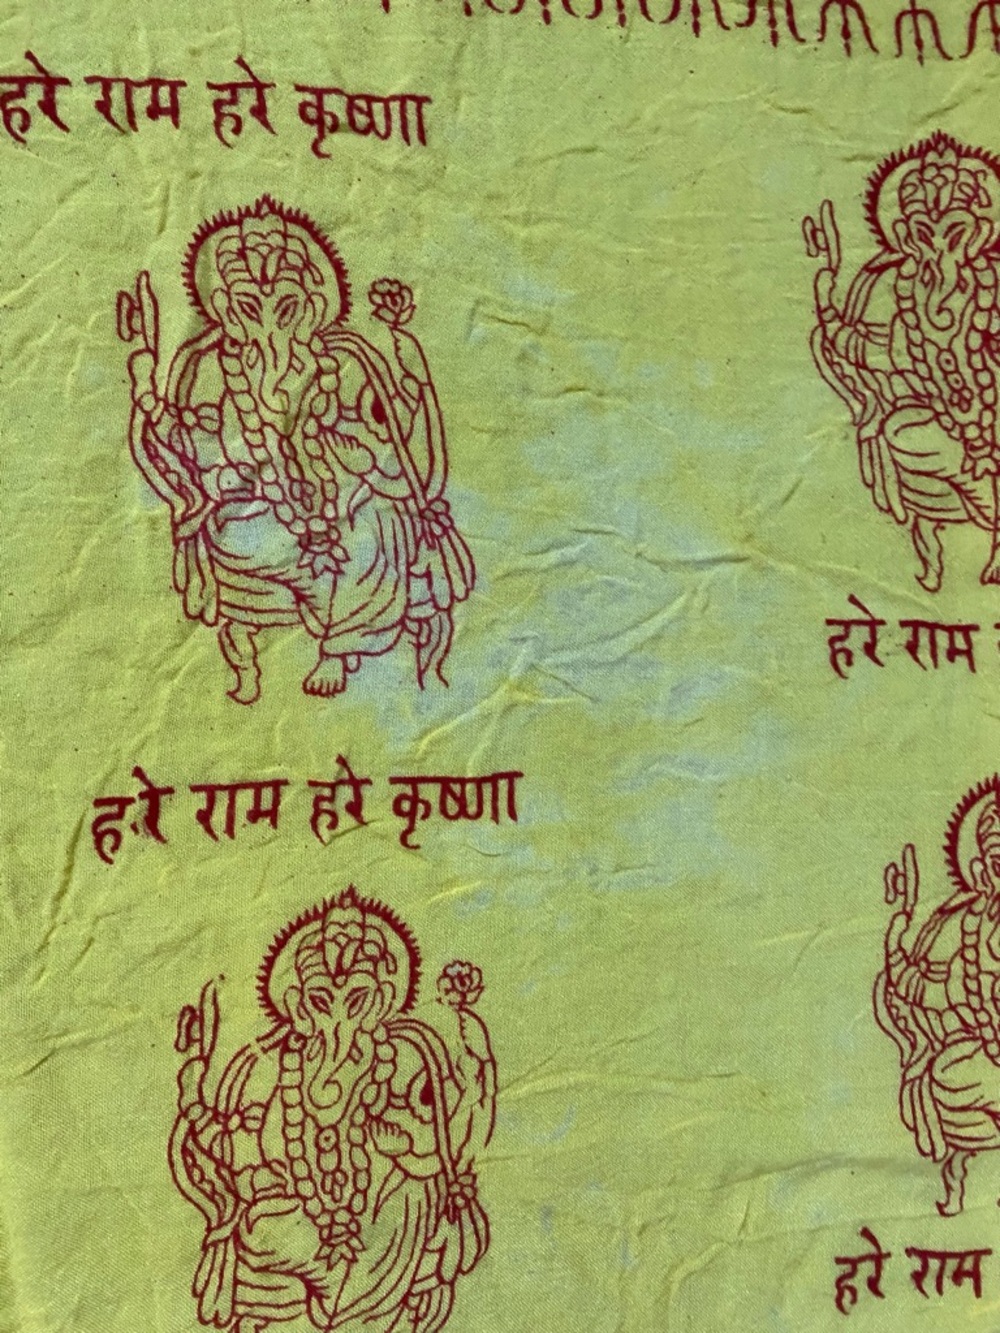 हरे राम हरे कृष्णा
हरे राम
हरे राम हरे कृष्णा
हरे राम